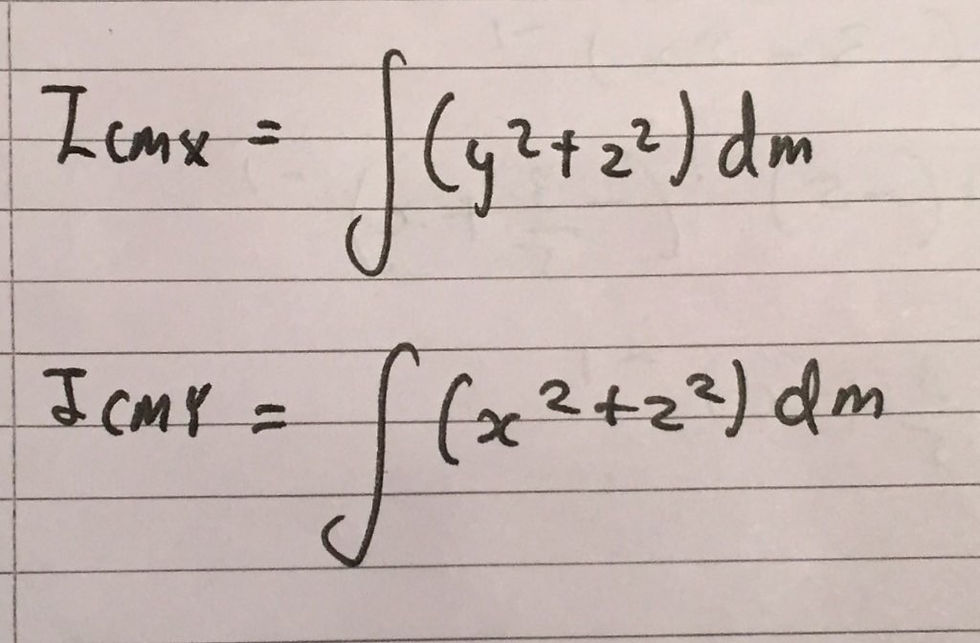 Icmx = ∫(y²+z²) dm
Icmy = ∫(x²+z²) dm